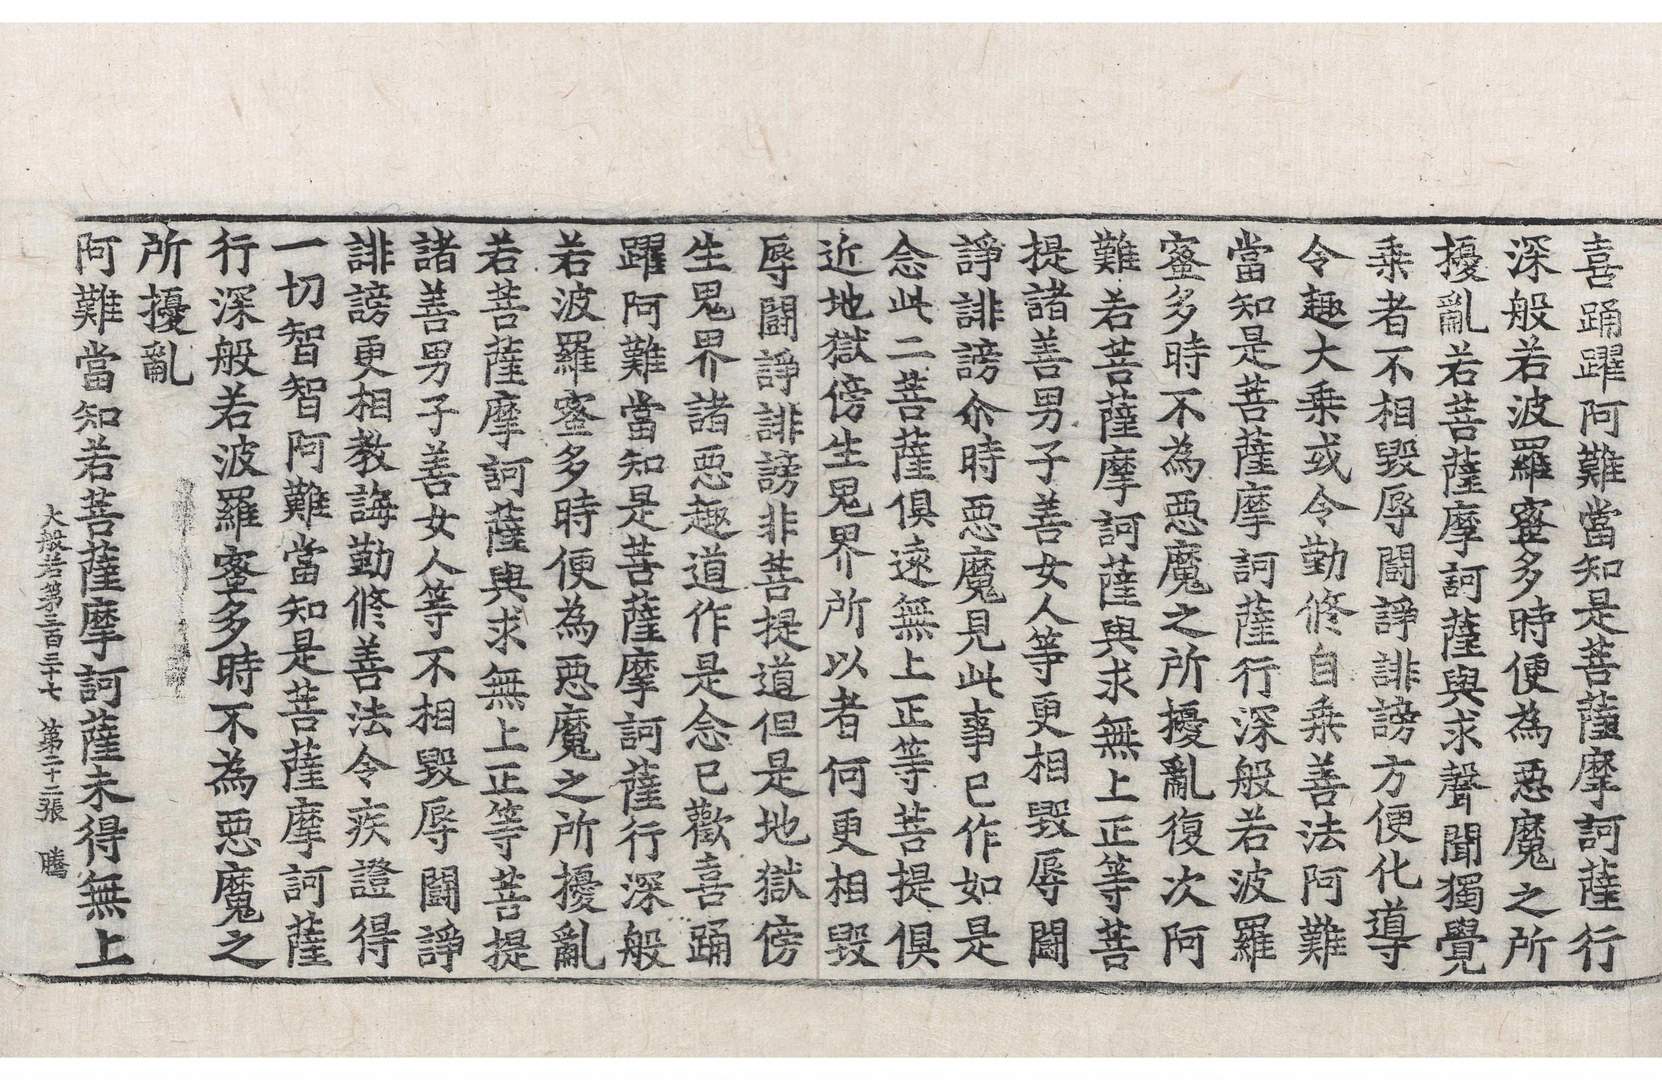 喜踊躍阿難當知是菩薩摩訶薩行
深般若波羅蜜多時便為惡魔之所
擾亂若菩薩摩訶薩與求聲聞獨覺
乗者不相毀辱鬪諍誹謗方便化導
令趣大乗或令勤修自乗善法阿難
當知是菩薩摩訶薩行深般若波羅
蜜多時不為惡魔之所擾亂復次阿
難若菩薩摩訶薩與求無上正等菩
提諸善男子善女人等更相毀辱鬪
諍誹謗尒時惡魔見此事已作如是
念此二菩薩俱遠無上正等菩提俱
近地獄傍生鬼界所以者何更相毀
辱鬪諍誹謗非菩提道但是地獄傍
生鬼界諸惡趣道作是念已歡喜踊
躍阿難當知是菩薩摩訶薩行深般
若波羅蜜多時便為惡魔之所擾亂
若菩薩摩訶薩與求無上正等菩提
諸善男子善女人等不相毀辱鬪諍
誹謗更相教誨勤修善法令疾證得
一切智智阿難當知是菩薩摩訶薩
行深般若波羅蜜多時不為惡魔之
所擾亂
阿難當知若菩薩摩訶薩未得無上
大般若第三百三十七 第二十二張 騰